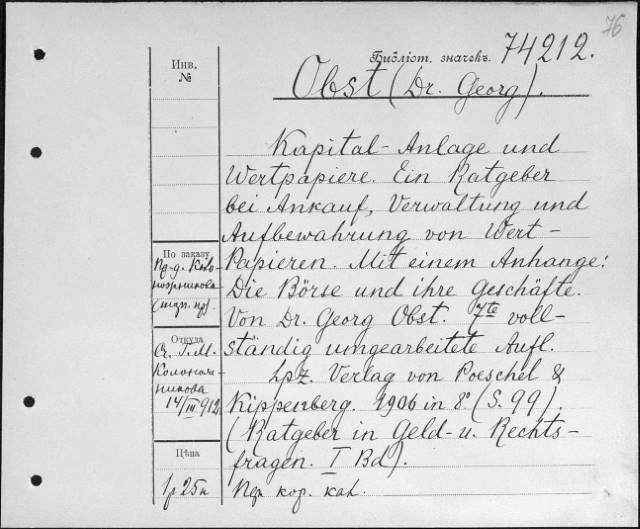 76
Библіот. значекъ. 74212.
Obst (Dr. Georg).
Инв.
№
Kapital-Anlage und
Wertpapiere. Ein Ratgeber
bei Ankauf, Verwaltung und
Aufbewahrung von Wert-
Papieren. Mit einem Anhange:
Die Börse und ihre Geschäfte.
Von Dr. Georg Obst. 7te voll-
ständig umgearbeitete Aufl.
Lpz. Verlag von Poeschel &
Kippenberg. 1906 in 8° (S. 99).
(Ratgeber in Geld- u. Rechts-
fragen. I Bd).
По заказу
Откуда
14/III 912
Цѣна
1р 25к